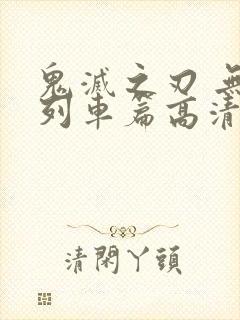 鬼滅之刃 無
列車篇高清
清閑丫頭